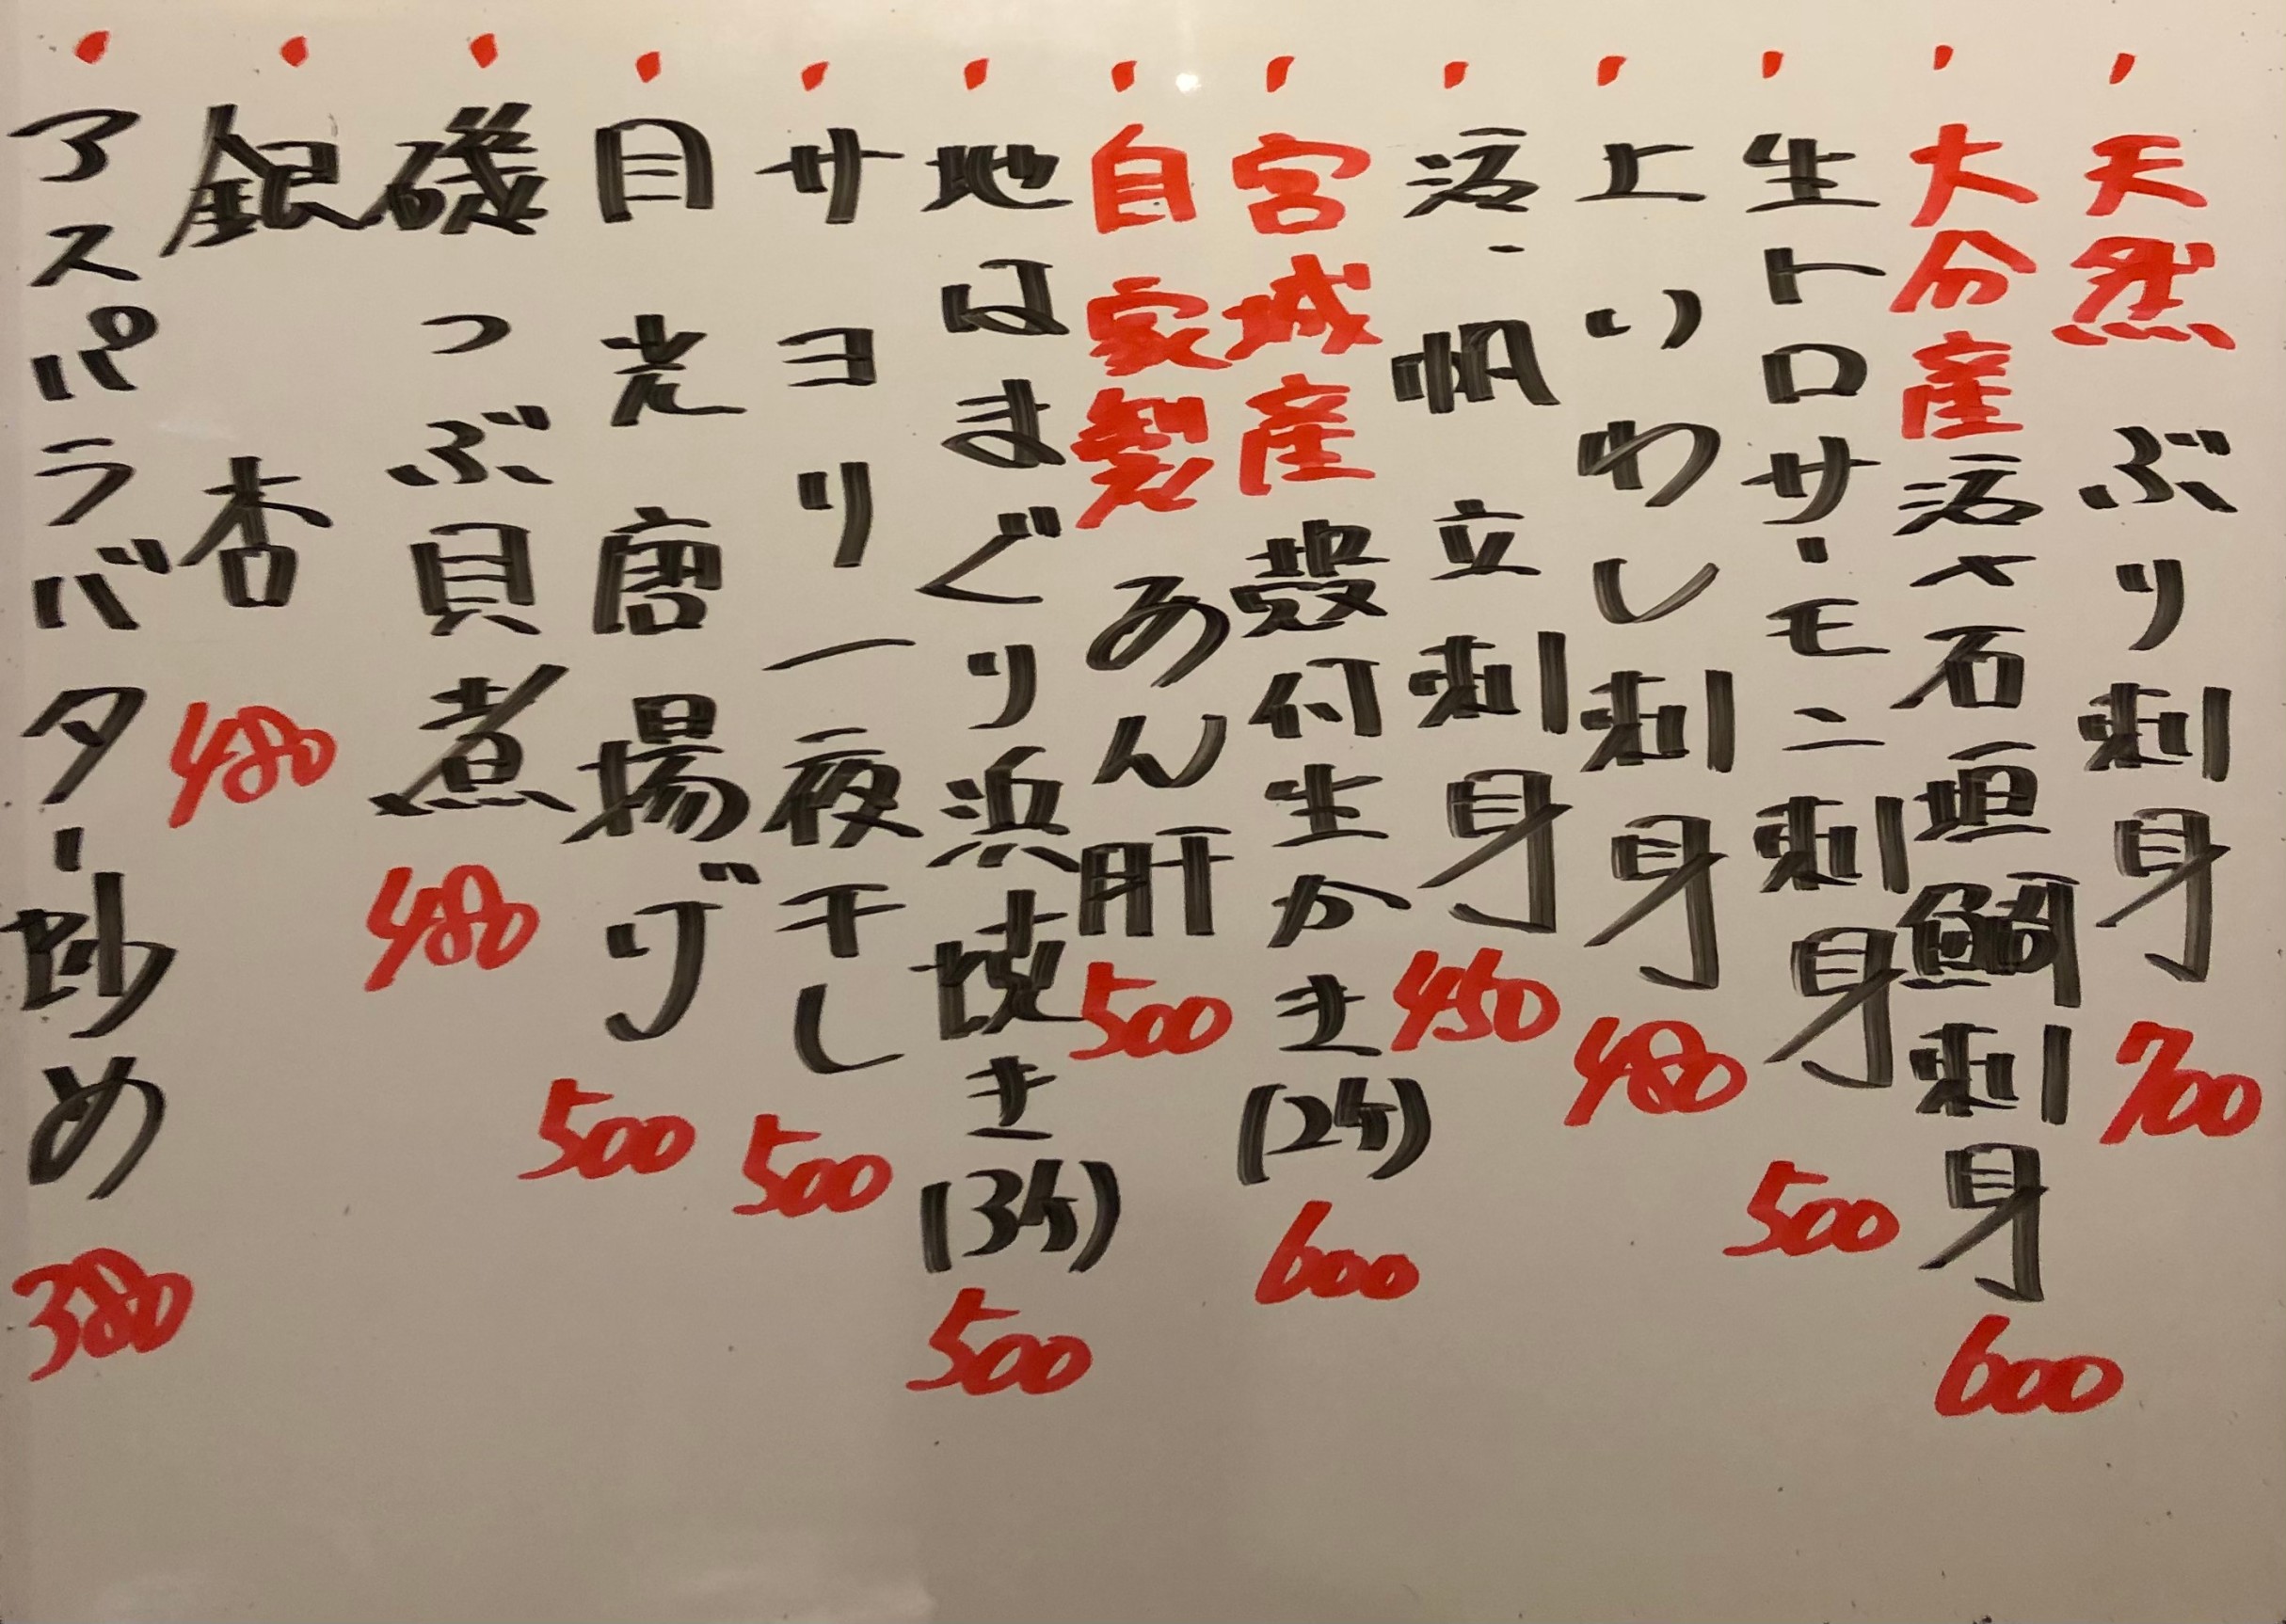 ・天然ぶり刺身 700
・大分産活〆石垣鯛刺身 600
・生トロサーモン刺身 500
・上いわし刺身 480
・活帆立刺身 450
・宮城産殻付生かき(2ケ) 600
・自家製あん肝 500
・地はまぐり浜焼き(3ケ) 500
・サヨリ一夜干し 500
・目光唐揚げ 500
・磯つぶ貝煮 480
・銀杏 480
・アスパラバター炒め 380